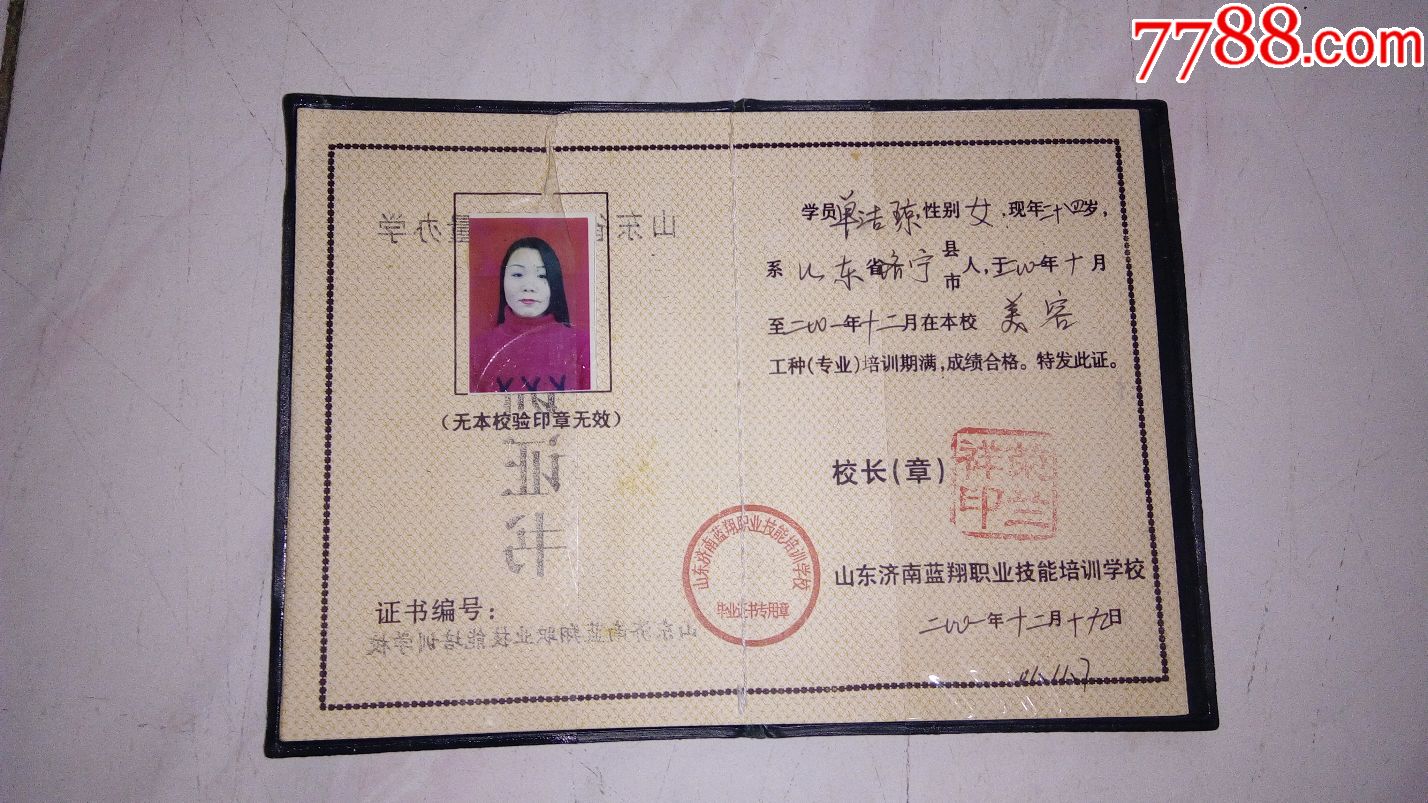 7788.com
山东省 量办学
(无本校验印章无效)
证
书
证书编号:
山东济南蓝翔职业技能培训学校
学员单洁琼,性别女,现年二十四岁,
系山东省济宁县市人,于二〇〇一年十月
至二〇〇一年十二月在本校 美容
工种(专业)培训期满,成绩合格。特发此证。
校长(章)
荣兰祥印
山东济南蓝翔职业技能培训学校
毕业证书专用章
山东济南蓝翔职业技能培训学校
二〇〇一年十二月十九日